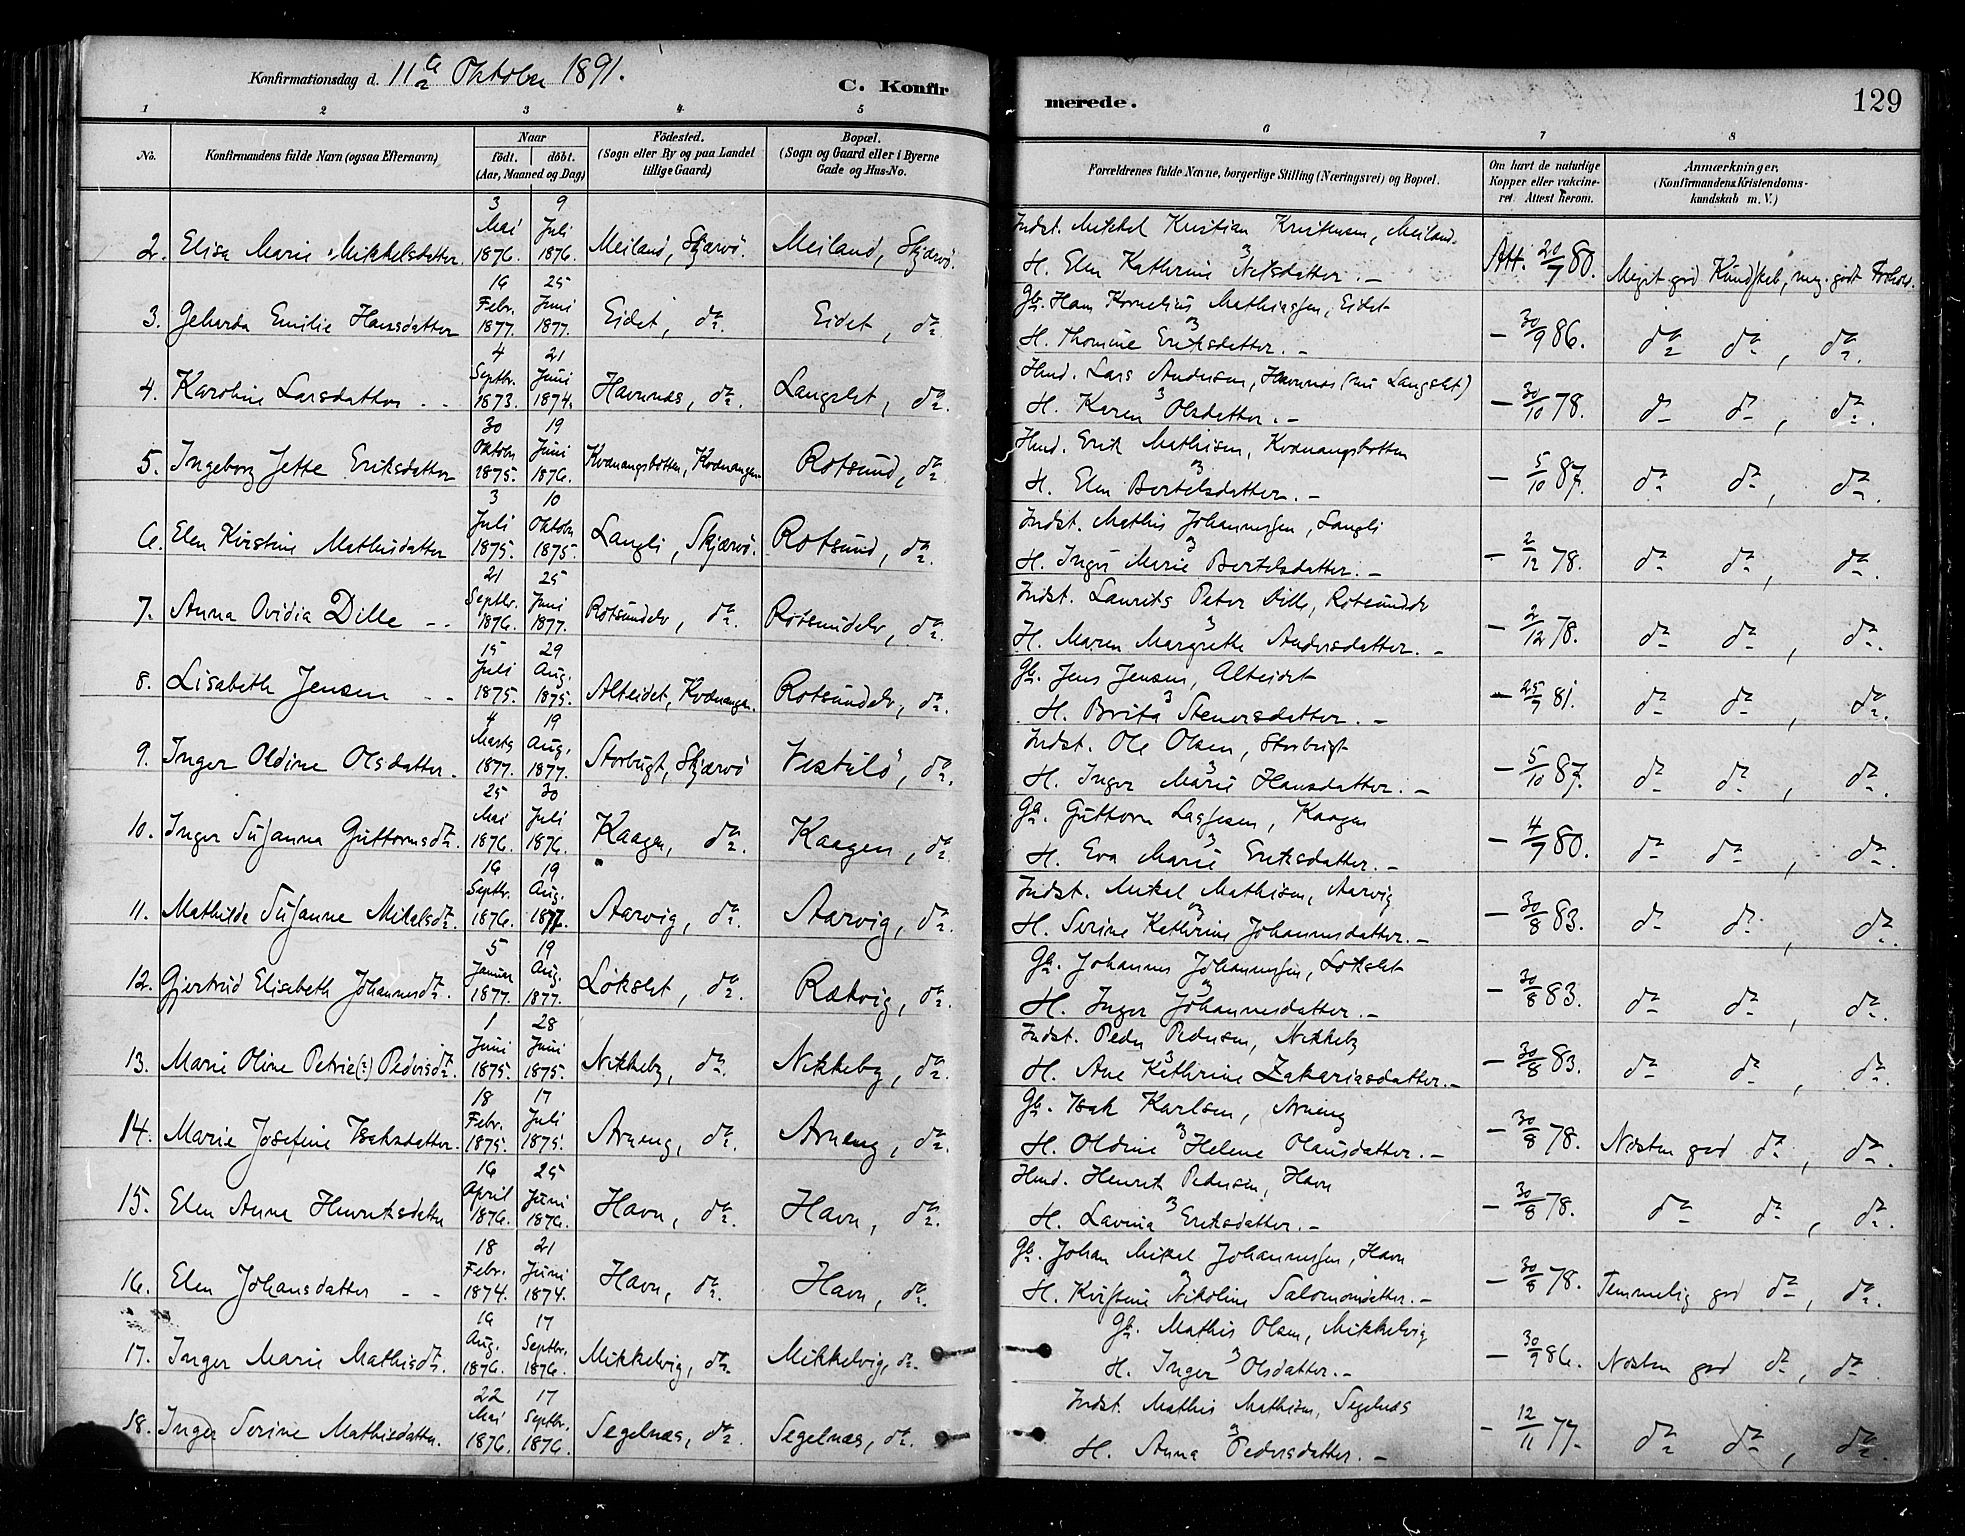 Konfirmationsdag d. 11te Oktober 1891.
C. Konfir
merede.
129
1 2 3 4 5 6 7 8
No.
Konfirmandens fulde Navn (ogsaa Efternavn)
Naar
födt. döbt.
(Aar, Maaned og Dag)
Födested.
(Sogn eller By og paa Landet
tillige Gaard)
Bopæl.
(Sogn og Gaard eller i Byerne
Gade og Hus-No.
Forældrenes fulde Navne, borgerlige Stilling (Næringsvei) og Bopæl.
Om havt de naturlige
Kopper eller vakcine-
ret. Attest herom.
Anmærkninger,
(Konfirmandens Kristendoms-
kundskab m. V.)
2. Elisa Marie Mikkelsdatter. 3 Mai 1876. 9 Juli 1876. Meiland, Skjærvö. Meiland, Skjærvö.
Indst. Mikkel Kristian Kristensen, Meiland.
H. Elen Kathrine Nilsdatter. –
Att. 20/7 80. Meget god Kundskab, meg. godt Forhold.
3. Geharda Emilie Hansdatter 16 Febr. 1877. 25 Juni 1877. Eidet, do. Eidet, do.
Gb. Hans Kornelius Mathiassen, Eidet
H. Thomine Eriksdatter. –
– 30/9 86. do do, do.
4. Karoline Larsdatter – – 4 Septbr. 1873. 21 Juni 1874. Havnnæs, do. Langslet, do.
Hmd. Lars Andersen, Havnnæs (nu Langslet)
H. Karen Olsdatter. –
– 30/10 78. do do, do.
5. Ingeborg Jette Eriksdatter 30 Oktober 1875. 19 Juni 1876. Kvænangsbotten, Kvænangen Rotsund, do.
Hmd. Erik Mathisen, Kvænangsbotten
H. Elen Bertelsdatter. –
– 5/10 87. do do, do.
6. Elen Kirstine Mathisdatter 3 Juli 1875. 10 Oktober 1875. Langli, Skjærvö. Rotsund, do.
Indst. Mathis Johannessen, Langli
H. Inger Marie Bertelsdatter. –
– 2/12 78. do do, do.
7. Anna Ovidia Dille – – 21 Septbr. 1876. 25 Juni 1877. Rotsundelv, do. Rotsundelv, do.
Indst. Laurits Peter Dille, Rotsundelv
H. Maren Margrethe Andersdatter. –
– 2/12 78. do do, do.
8. Lisabeth Jensen – – 15 Juli 1875. 29 Aug. 1875. Alteidet, Kvænangen. Rotsundelv, do.
Gb. Jens Jensen, Alteidet
H. Brita Stenersdatter. –
– 25/9 81. do do, do.
9. Inger Oldine Olsdatter. 4 Marts 1877. 19 Aug. 1877. Storbugt, Skjærvö do.
Indst. Ole Olsen, Storbugt
H. Inger Marie Hansdatter. –
– 5/10 87. do do, do.
10. Inger Susanna Guttormsdr. 25 Mai 1876. 30 Juli 1876. Kaagen, do. Kaagen, do.
Gb. Guttorm Lassesen, Kaagen
H. Eva Marie Eriksdatter. –
– 4/7 80. do do, do.
11. Mathilde Susanne Mikalsdr. 16 Septbr. 1876. 19 Aug. 1877. Aarvig, do. Aarvig, do.
Indst. Mikal Mathisen, Aarvig
H. Serine Kathrine Johannesdatter. –
– 30/8 83. do do, do.
12. Gjertrud Elisabeth Johannesdr. 5 Januar 1877. 19 Aug. 1877. Lökslet, do. Rækvig, do.
Gb. Johannes Johannessen, Lökslet
H. Inger Johannesdatter. –
– 30/8 83. do do, do.
13. Marie Oline Petrie(?) Pedersdr. 1 Juni 1875. 28 Juni 1875. Nikkeby, do. Nikkeby, do.
Indst. Peder Pedersen, Nikkeby
H. Ane Kathrine Zakariasdatter. –
– 30/8 83. do do, do.
14. Marie Josefine Isaksdatter. 18 Febr. 1875. 17 Juli 1875. Arneng, do. Arneng, do.
Gb. Isak Karlsen, Arneng
H. Oldine Helene Olausdatter. –
– 30/8 78. Næsten god do, do.
15. Elen Anna Henriksdatter 16 April 1876. 25 Juni 1876. Havn, do. Havn, do.
Hmd. Henrik Pedersen, Havn
H. Lavina Eriksdatter. –
– 30/8 78. do do, do.
16. Elen Johansdatter – – 18 Febr. 1874. 21 Juni 1874. Havn, do. Havn, do.
Gb. Johan Mikal Johannessen, Havn
H. Nikoline Salomonsdatter. –
– 30/8 78. Temmelig god do, do.
17. Inger Marie Mathisdr. 16 Aug. 1876. 17 Septbr. 1876. Mikkelvig, do. Mikkelvig, do.
Gb. Mathis Olsen, Mikkelvig
H. Inger Olsdatter. –
– 30/9 86. Næsten god do, do
18. Inger Serine Mathisdatter. 22 Mai 1876. 17 Septbr. 1876. Segelnæs, do. Segelnæs, do.
Indst. Mathis Mathisen, Segelnæs
H. Anna Pedersdatter. –
– 12/11 77. do do, do.